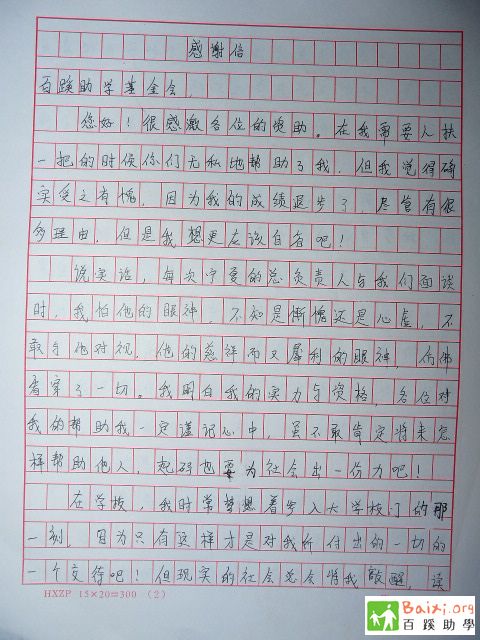 感谢信
百蹊助学基金会
您好！很感激各位的资助。在我需要人扶
一把的时候你们无私地帮助了我，但我觉得确
实受之有愧，因为我的成绩退步了 尽管有很
多理由，但是我想更应该自省吧！
说实话，每次宁夏的总负责人与我们面谈
时，我怕他的眼神 不知是惭愧还是心虚，不
敢与他对视，他的慈祥而又犀利的眼神，仿佛
看穿了一切。我明白我的实力与资格，各位对
我的帮助我一定谨记心中，虽不敢肯定将来怎
样帮助他人，起码也要为社会出一份力吧！
在学校，我时常梦想着步入大学校门的那
一刻，因为只有这样才是对我所付出的一切的
一个交待吧！但现实的社会总会将我敲醒，读
HXZP 15×20=300 (2)
Baixi.org
百蹊助學